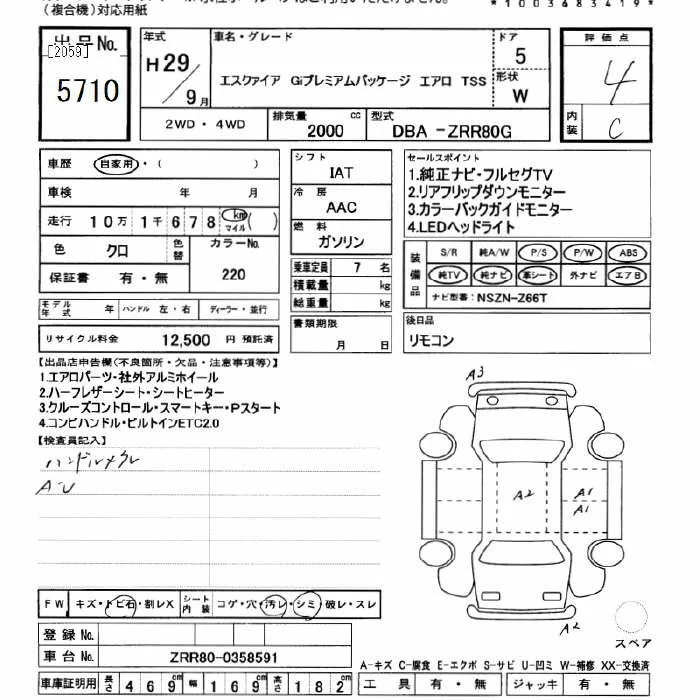 （複合機）対応用紙
*1003683419*
出品No.
[2059]
5710
年式
H29
9月
車名・グレード
エスクァイア Giプレミアムパッケージ エアロ TSS
ドア
5
形状
W
2WD・4WD
排気量
2000 cc
型式
DBA -ZRR80G
評価点
4
内装
C
車歴 自家用・( )
車検 年 月
走行 10万1千678 km マイル ( )
色 クロ
色替
カラーNo.
220
保証書 有・無
モデル年式 年 ハンドル 左・右 ディーラー・並行
リサイクル料金 12,500 円 預託済
シフト
IAT
冷房
AAC
燃料
ガソリン
乗車定員 7 名
積載量 kg
総重量 kg
書類期限
月 日
セールスポイント
1.純正ナビ・フルセグTV
2.リアフリップダウンモニター
3.カラーバックガイドモニター
4.LEDヘッドライト
装備品
S/R 純A/W P/S P/W ABS
純TV 純ナビ 革シート 外ナビ エアB
ナビ型番: NSZN-Z66T
後日品
リモコン
【出品店申告欄(不良箇所・欠品・注意事項等)】
1.エアロパーツ・社外アルミホイール
2.ハーフレザーシート・シートヒーター
3.クルーズコントロール・スマートキー・Pスタート
4.コンビハンドル・ビルトインETC2.0
【検査員記入】
A-U
A3
A2
A1
A1
A2
スペア
FW キズ・トビ石・割レX シート内装 コゲ・穴・汚レ・シミ・破レ・スレ
登録No.
車台No. ZRR80-0358591
A-キズ C-腐食 E-エクボ S-サビ U-凹ミ W-補修 XX-交換済
車庫証明用 長さ 469cm 幅 169cm 高さ 182cm
工具 有・無 ジャッキ 有・無